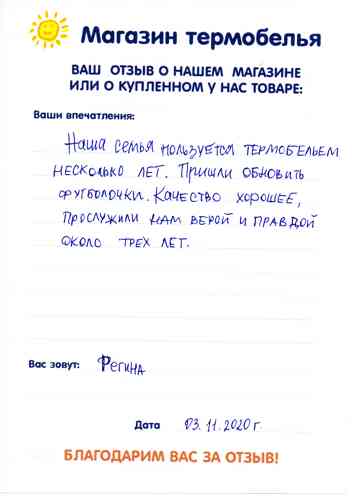 Магазин термобелья
ВАШ ОТЗЫВ О НАШЕМ МАГАЗИНЕ
ИЛИ О КУПЛЕННОМ У НАС ТОВАРЕ:
Ваши впечатления:
Наша семья пользуется термобельем
несколько лет. Пришли обновить
футболочки. Качество хорошее,
прослужили нам верой и правдой
около трех лет.
Вас зовут: Регина
Дата 03.11.2020 г.
БЛАГОДАРИМ ВАС ЗА ОТЗЫВ!